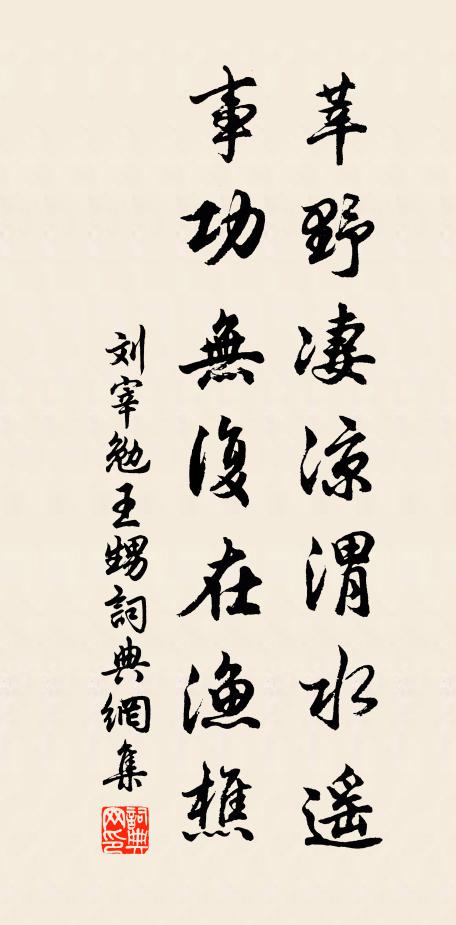 莘野凄涼渭水遥
事功無復在漁樵
刘宰勉王甥詞典網集
詞典网印